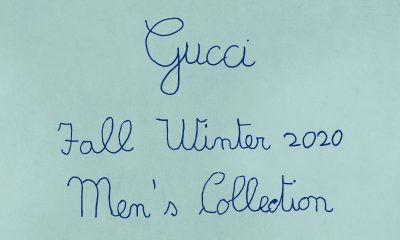 Gucci
Fall Winter 2020
Men's Collection